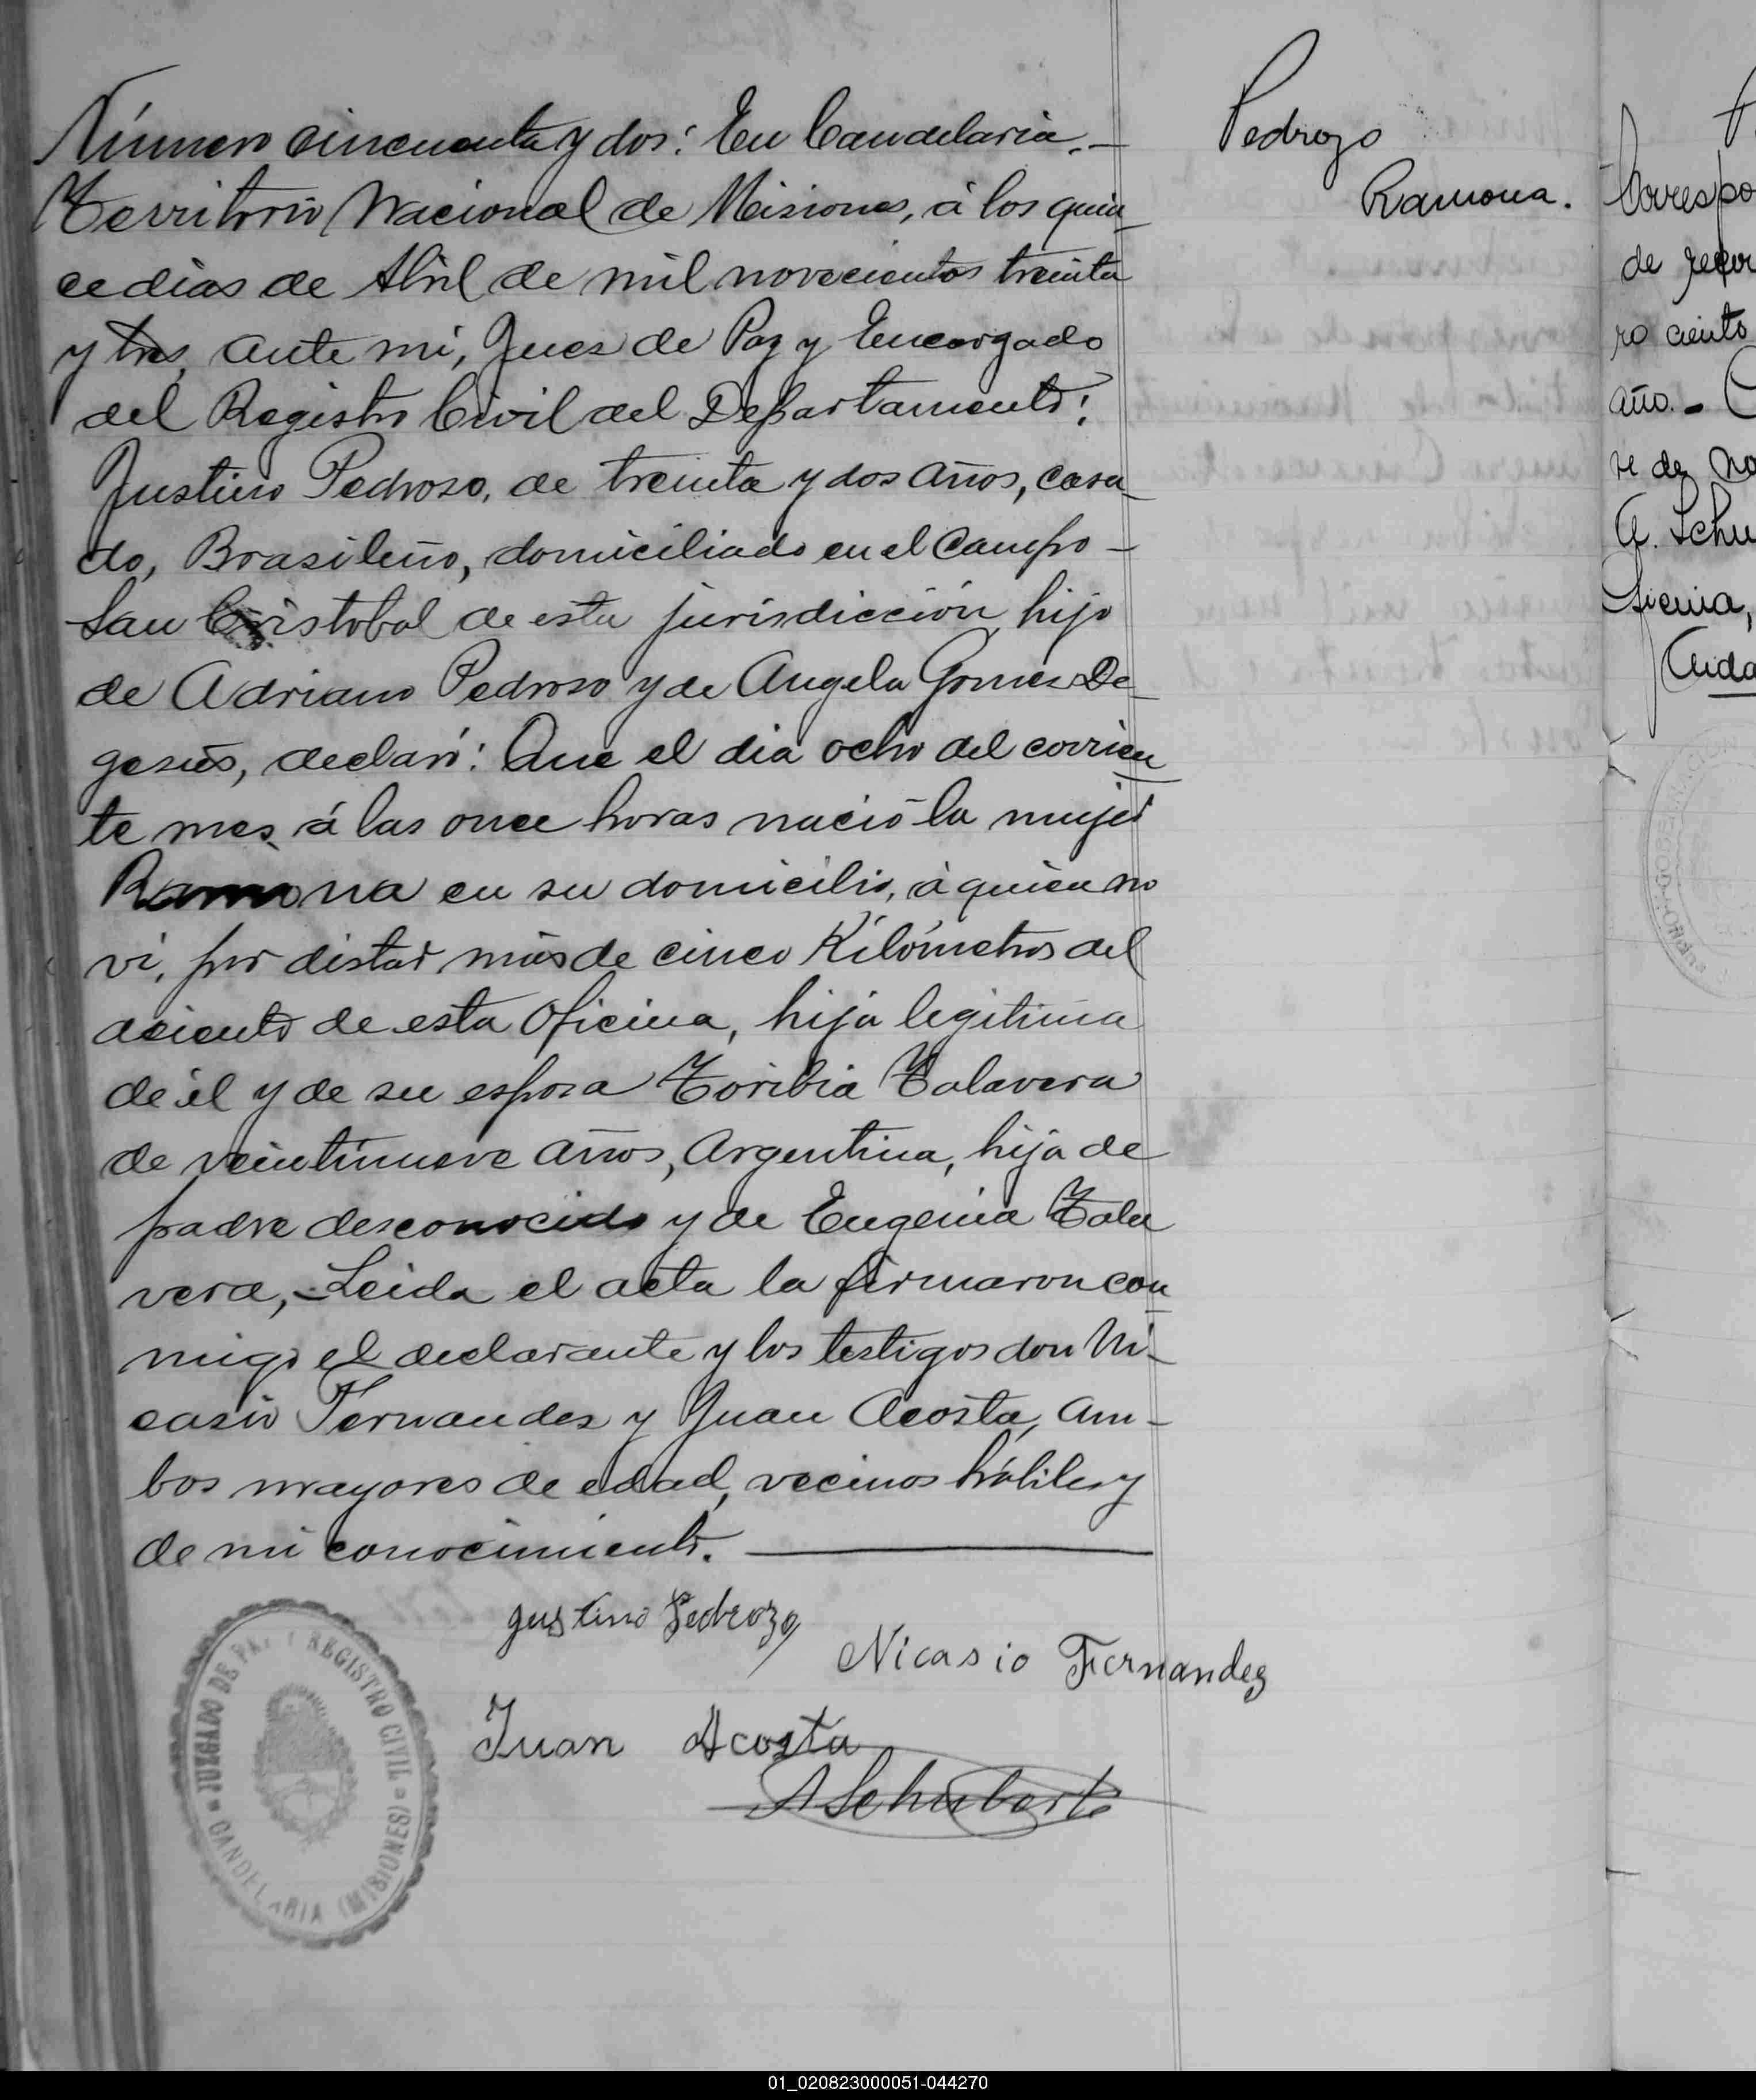 Número cincuenta y dos: En Candelaria.-
Territorio Nacional de Misiones, á los quin-
ce dias de Abril de mil novecientos treinta
y tres, ante mi, Juez de Paz y Encargado
del Registro Civil del Departamento:
Justino Pedroso, de treinta y dos años, casa-
do, Brasileño, domiciliado en el Campo -
San Cristobal de esta jurisdicción, hijo
de Adriano Pedroso y de Angela Gomez De-
gesús, declaró: Que el dia ocho del corrien-
te mes, á las once horas nació la mujer
Ramona en su domicilio, á quien no
vi, por distar más de cinco Kilómetros del
asiento de esta Oficina, hija legitima
de él y de su esposa Toribia Talavera
de veintinueve años, Argentina, hija de
padre desconocido y de Eugenia Tala
vera,- Leida el acta la firmaron con-
migo el declarante y los testigos don Ni-
casio Fernandez y Juan Acosta, am-
bos mayores de edad, vecinos hábiles y
de mi conocimiento.
gustino Pedrozo
Nicasio Fernandez
Juan Acosta
A Schubert
JUZGADO DE PAZ Y REGISTRO CIVIL
CANDELARIA (MISIONES)
Pedrozo
Ramona.
Correspo
de
ro ciento
año.-
re de no
A. Schu
ficina,
01_020823000051-044270